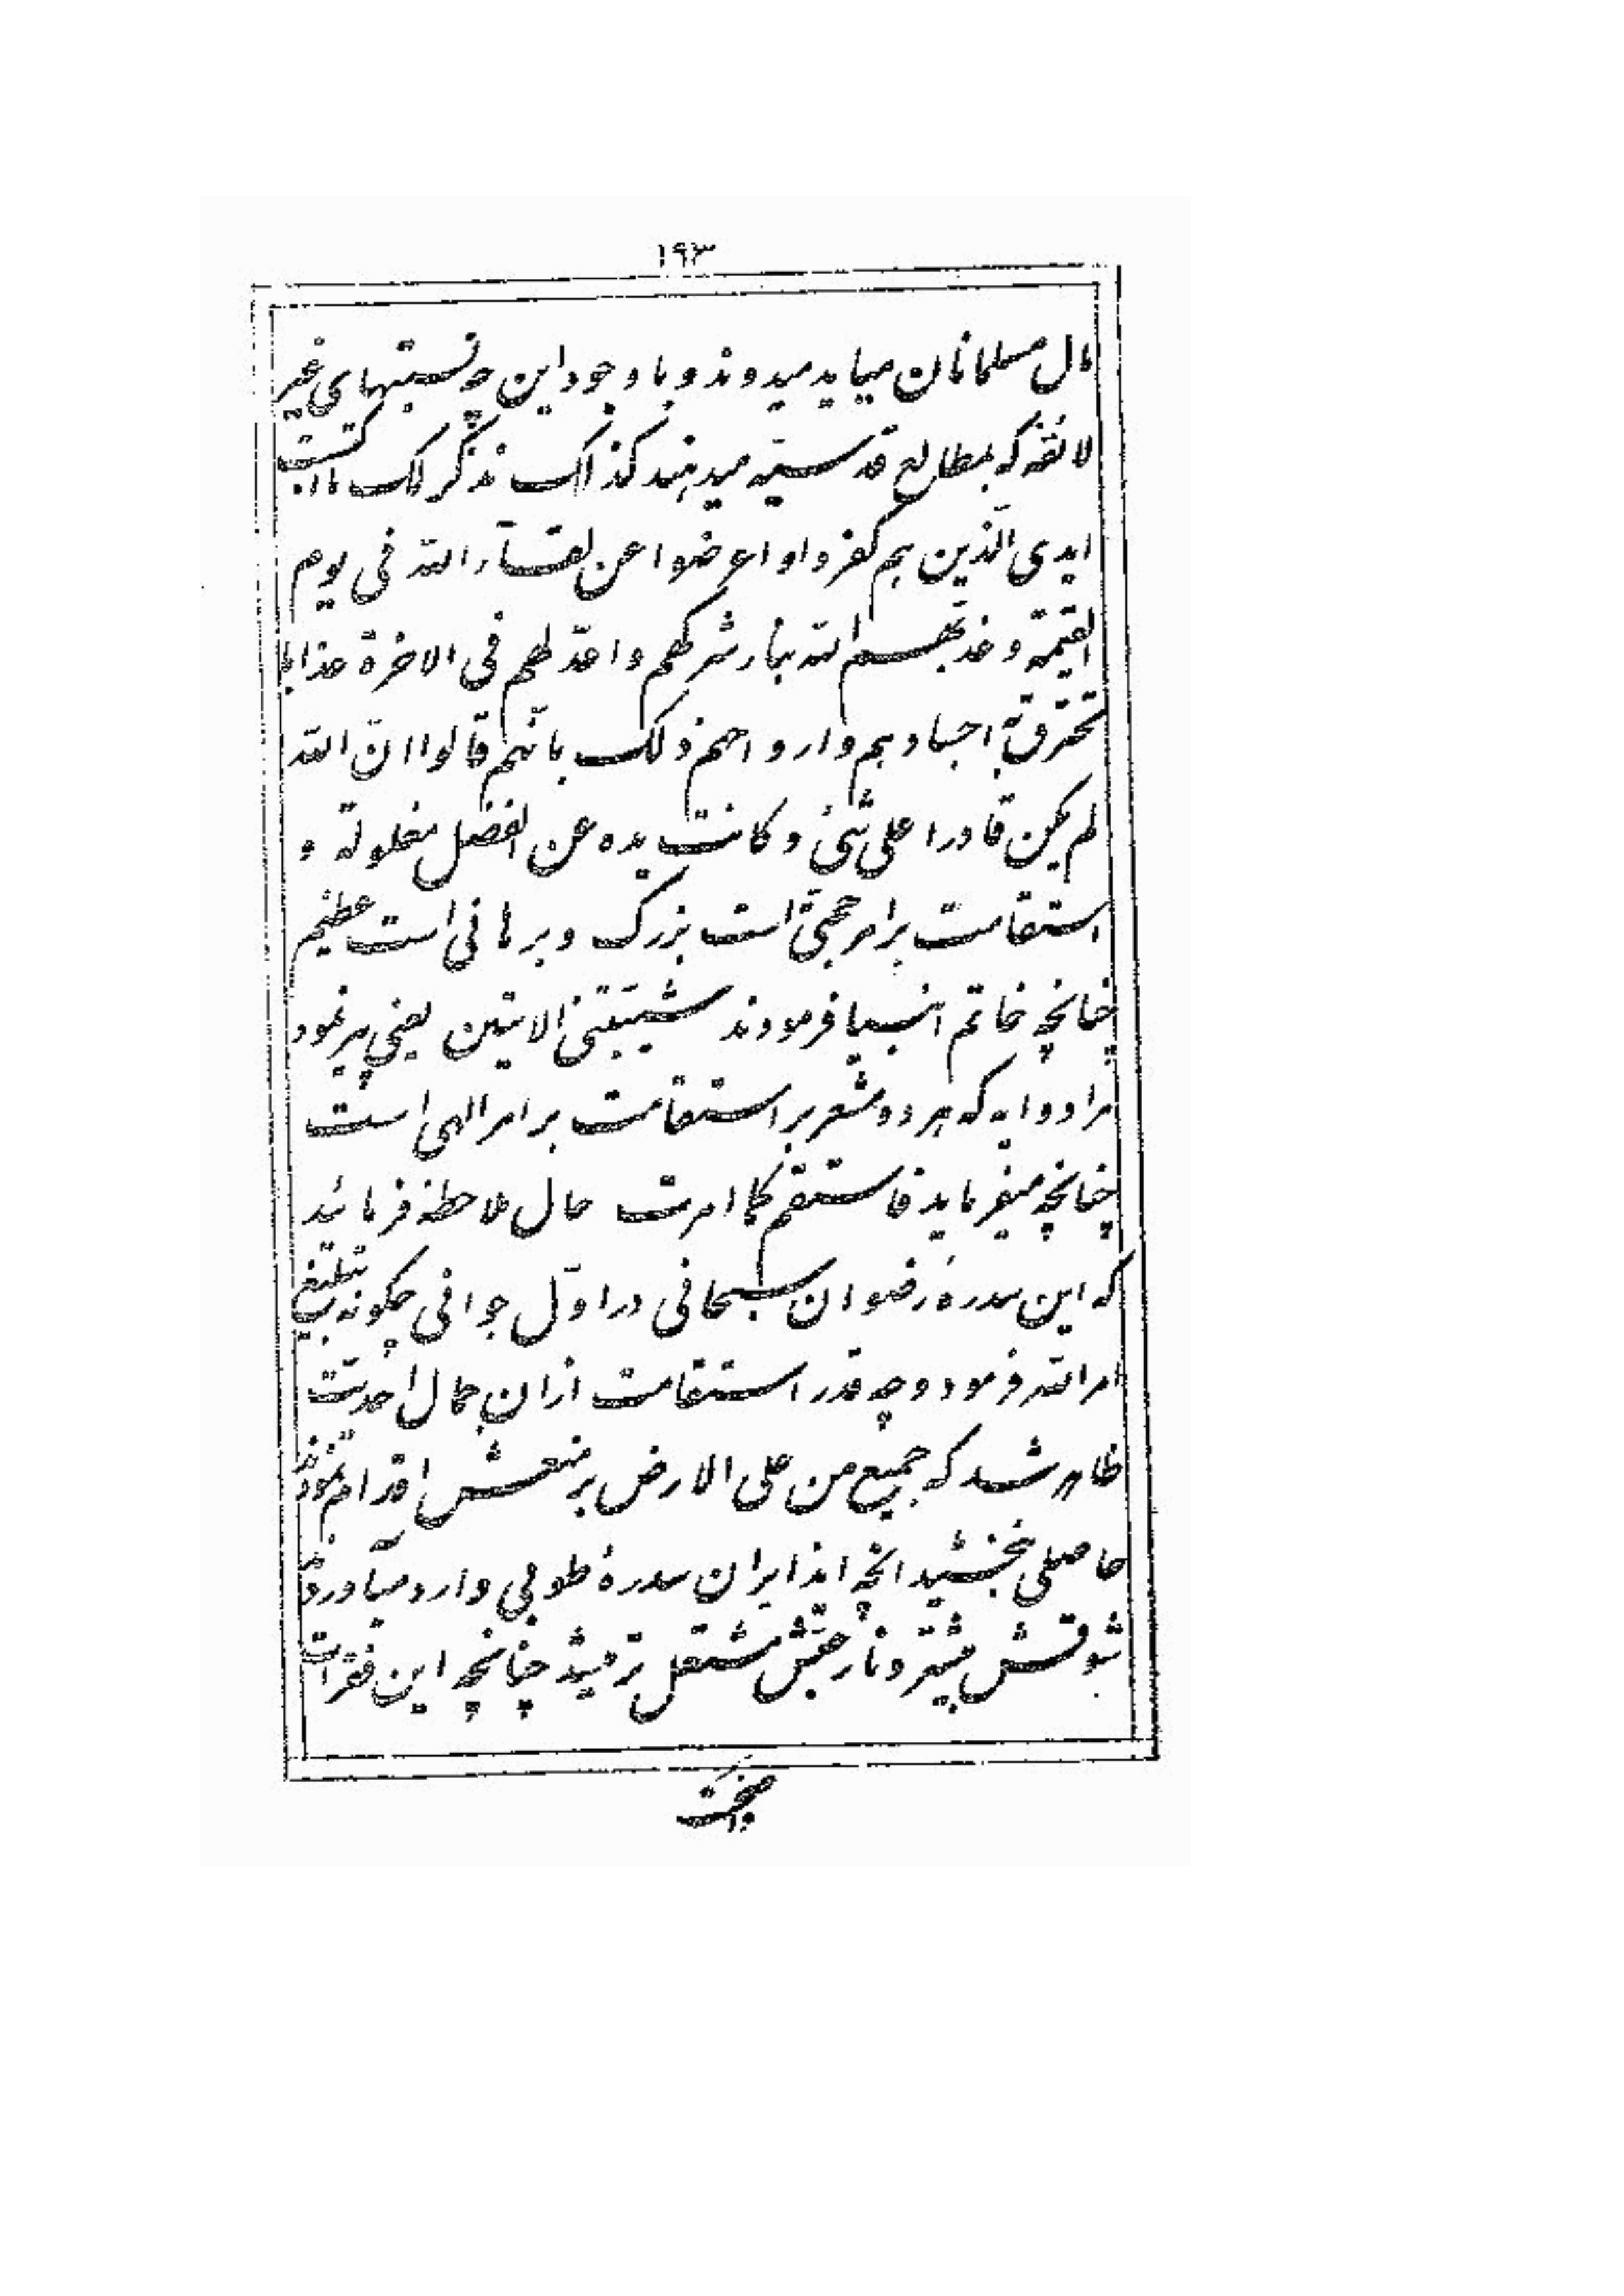 ۱۹۳
مال مسلمانان میاید میدوند و با وجود این چه نسبتهای غیر
لائقه که بمطالع قدسیّه میدهند کذلک نذکر لک ما اکتسبت
ایدی الّذین هم کفروا و اعرضوا عن لقآء اللّه فی یوم
القیمة و عذّبهم اللّه بنار شرکهم و اعدّ لهم فی الاخرة عذابا
تحترق به اجسادهم و ارواحهم ذلک بانّهم قالوا انّ اللّه
لم یکن قادرا علی شیئ و کانت یده عن الفضل مغلولة و
استقامت بر امر حجّتی است بزرگ و برهانی است عظیم
چنانچه خاتم انبیا فرمودند شیّبتنی الایتین یعنی پیر نمود
مرا دو ایه که هر دو مشعر بر استقامت بر امر الهی است
چنانچه میفرماید فاستقم کما امرت حال ملاحظه فرمائید
که این سدرهٔ رضوان سبحانی در اوّل جوانی چگونه تبلیغ
امر اللّه فرمود و چه قدر استقامت از ان جمال احدیّت
ظاهر شد که جمیع من علی الارض بر منعش اقدام نمودند
حاصلی نبخشید انچه ایذا بر ان سدرهٔ طوبی وارد میآوردند
شوقش بیشتر و نار حبّش مشتعل‌تر میشد چنانچه این فقرات